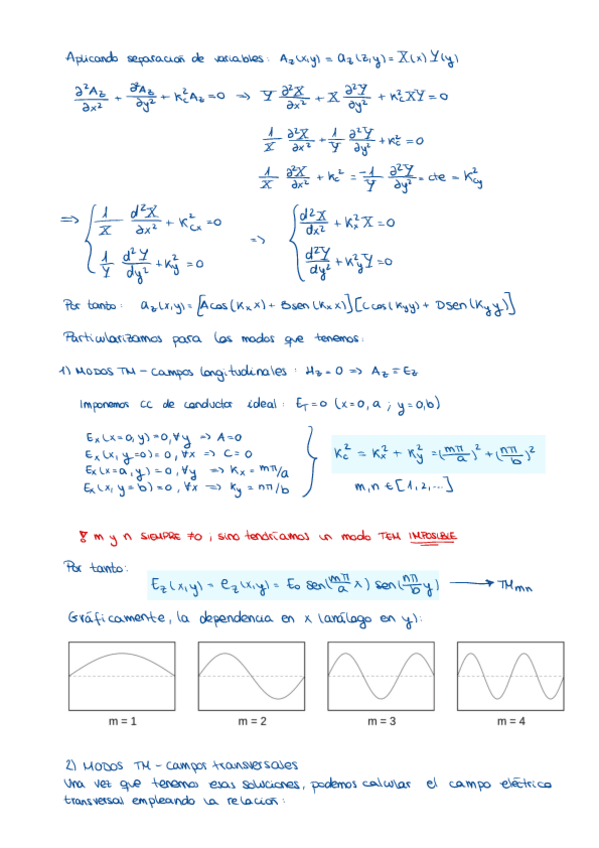 Aplicando separación de variables: Az(x,y) = az(z,y) = X(x) Y(y)
∂²Az/∂x² + ∂²Az/∂y² + Kc²Az = 0 ⇒ Y ∂²X/∂x² + X ∂²Y/∂y² + Kc²XY = 0
1/X ∂²X/∂x² + 1/Y ∂²Y/∂y² + Kc² = 0
1/X ∂²X/∂x² + Kc² = -1/Y ∂²Y/∂y² = cte = Kcy²
⇒ { 1/X d²X/∂x² + Kcx² = 0 ⇒ { d²X/dx² + Kx²X = 0
1/Y d²Y/dy² + Ky² = 0 d²Y/dy² + Ky²Y = 0
Por tanto: az(x,y) = [A cos(Kx x) + B sen(Kx x)] [C cos(Ky y) + D sen(Ky y)]
Particularizamos para los modos que tenemos:
1) MODOS TM - campos longitudinales: Hz = 0 ⇒ Az = Ez
Imponemos CC de conductor ideal: ET = 0 (x=0,a ; y=0,b)
Ex(x=0,y) = 0, ∀y ⇒ A = 0
Ex(x,y=0) = 0, ∀x ⇒ C = 0
Ex(x=a,y) = 0, ∀y ⇒ Kx = mπ/a
Ex(x,y=b) = 0, ∀x ⇒ Ky = nπ/b
Kc² = Kx² + Ky² = (mπ/a)² + (nπ/b)²
m,n ∈ [1,2,...]
! m y n SIEMPRE ≠0, sino tendríamos un modo TEM IMPOSIBLE
Por tanto:
Ez(x,y) = ez(x,y) = E0 sen(mπ/a x) sen(nπ/b y) → TMmn
Gráficamente, la dependencia en x (análogo en y):
m = 1 m = 2 m = 3 m = 4
2) MODOS TM - campos transversales
Una vez que tenemos esas soluciones, podemos calcular el campo eléctrico
transversal empleando la relación: